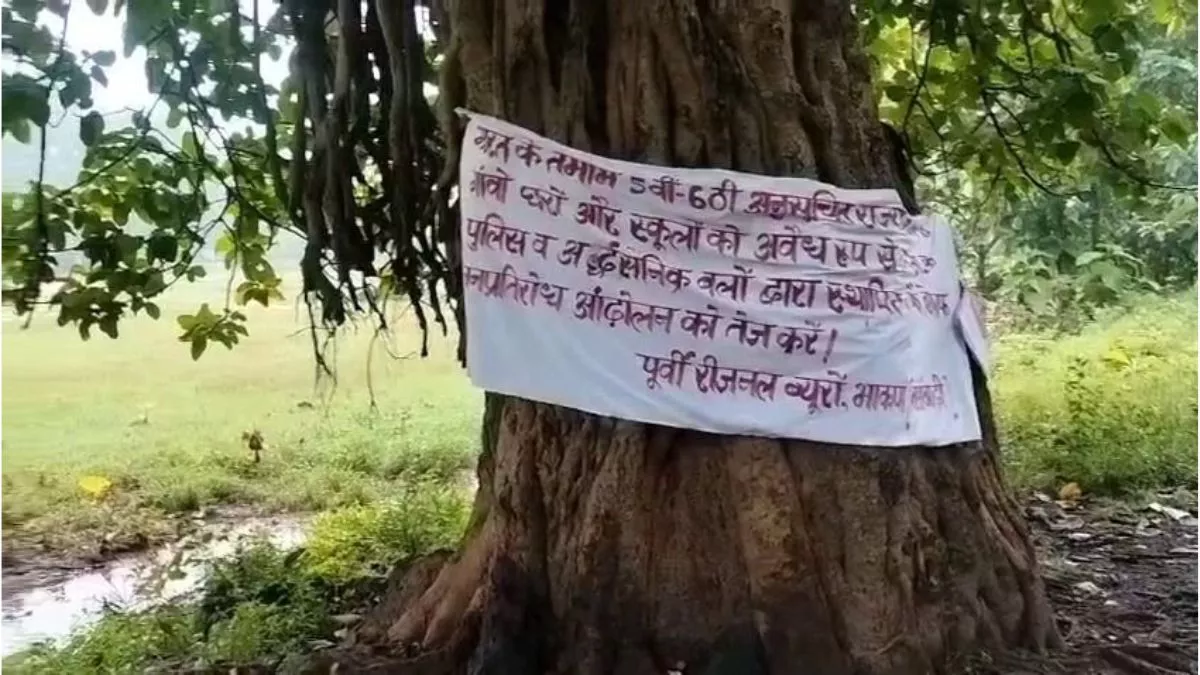 के तमाम 5वीं-6ठी अनुसूचित
गांवो घरों और स्कूलों को अवैध रूप से
पुलिस व अर्द्धसैनिक बलों द्वारा स्थापित
जनप्रतिरोध आंदोलन को तेज करें!
पूर्वी रीजनल ब्यूरों, भाकपा